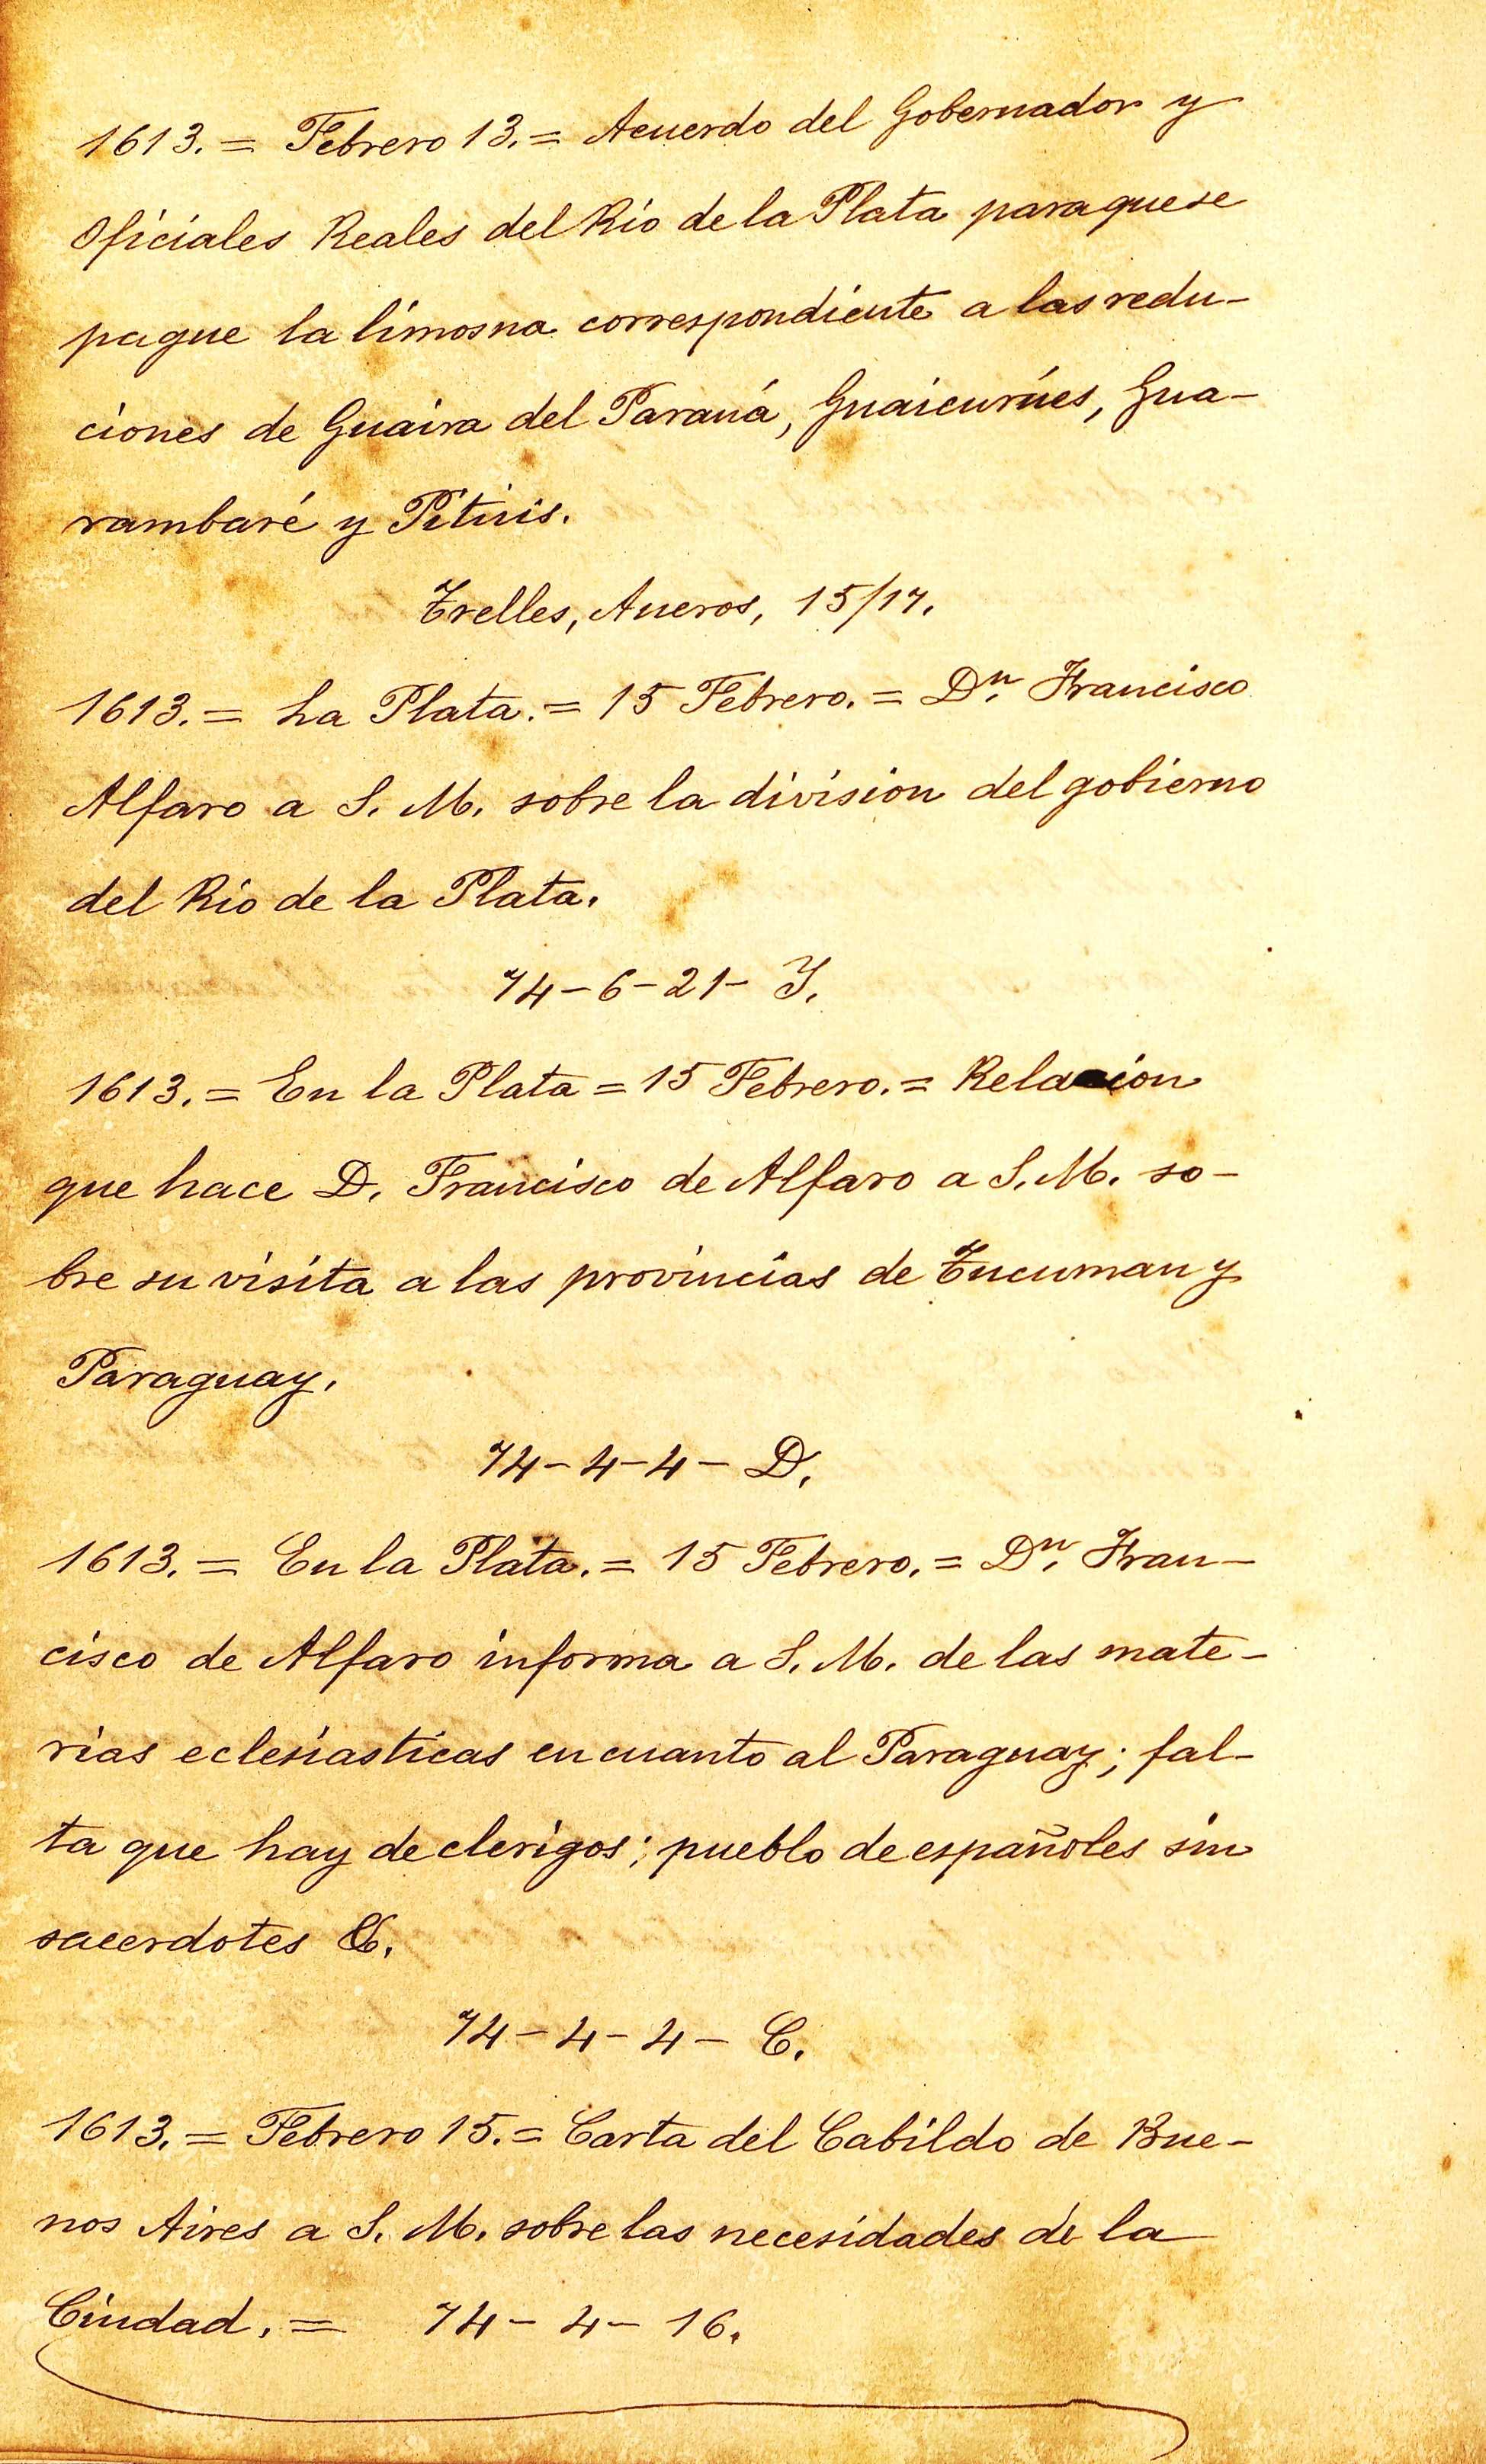 1613. = Febrero 13. = Acuerdo del Gobernador y
Oficiales Reales del Rio de la Plata para que se
pague la limosna correspondiente a las redu-
ciones de Guaira del Paraná, Guaicurúes, Gua-
rambaré y Pitiris.
Trelles, Aneros, 15/17.
1613. = La Plata. = 15 Febrero. = Dn. Francisco
Alfaro a S. M. sobre la division del gobierno
del Rio de la Plata.
74-6-21- I.
1613. = En la Plata = 15 Febrero. = Relacion
que hace D. Francisco de Alfaro a S. M. so-
bre su visita a las provincias de Tucuman y
Paraguay.
74-4-4- D.
1613. = En la Plata. = 15 Febrero. = Dn. Fran-
cisco de Alfaro informa a S. M. de las mate-
rias eclesiasticas en cuanto al Paraguay; fal-
ta que hay de clerigos; pueblo de españoles sin
sacerdotes &.
74-4-4- C.
1613. = Febrero 15. = Carta del Cabildo de Bue-
nos Aires a S. M. sobre las necesidades de la
Ciudad. = 74-4-16.